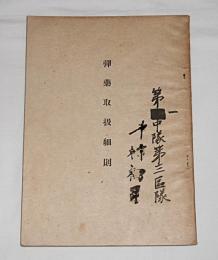 彈藥取扱細則
第一中隊第三區隊